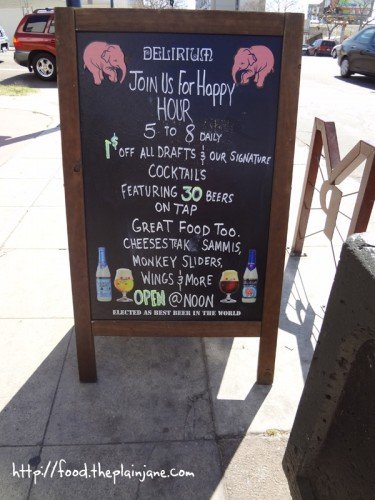 DELIRIUM
JOIN US FOR HAPPY
HOUR
5 TO 8 DAILY
1$ OFF ALL DRAFTS & OUR SIGNATURE
COCKTAILS
FEATURING 30 BEERS
ON TAP
GREAT FOOD TOO.
CHEESESTEAK SAMMIS,
MONKEY SLIDERS,
WINGS & MORE
OPEN @ NOON
ELECTED AS BEST BEER IN THE WORLD
http://food.theplainjane.com